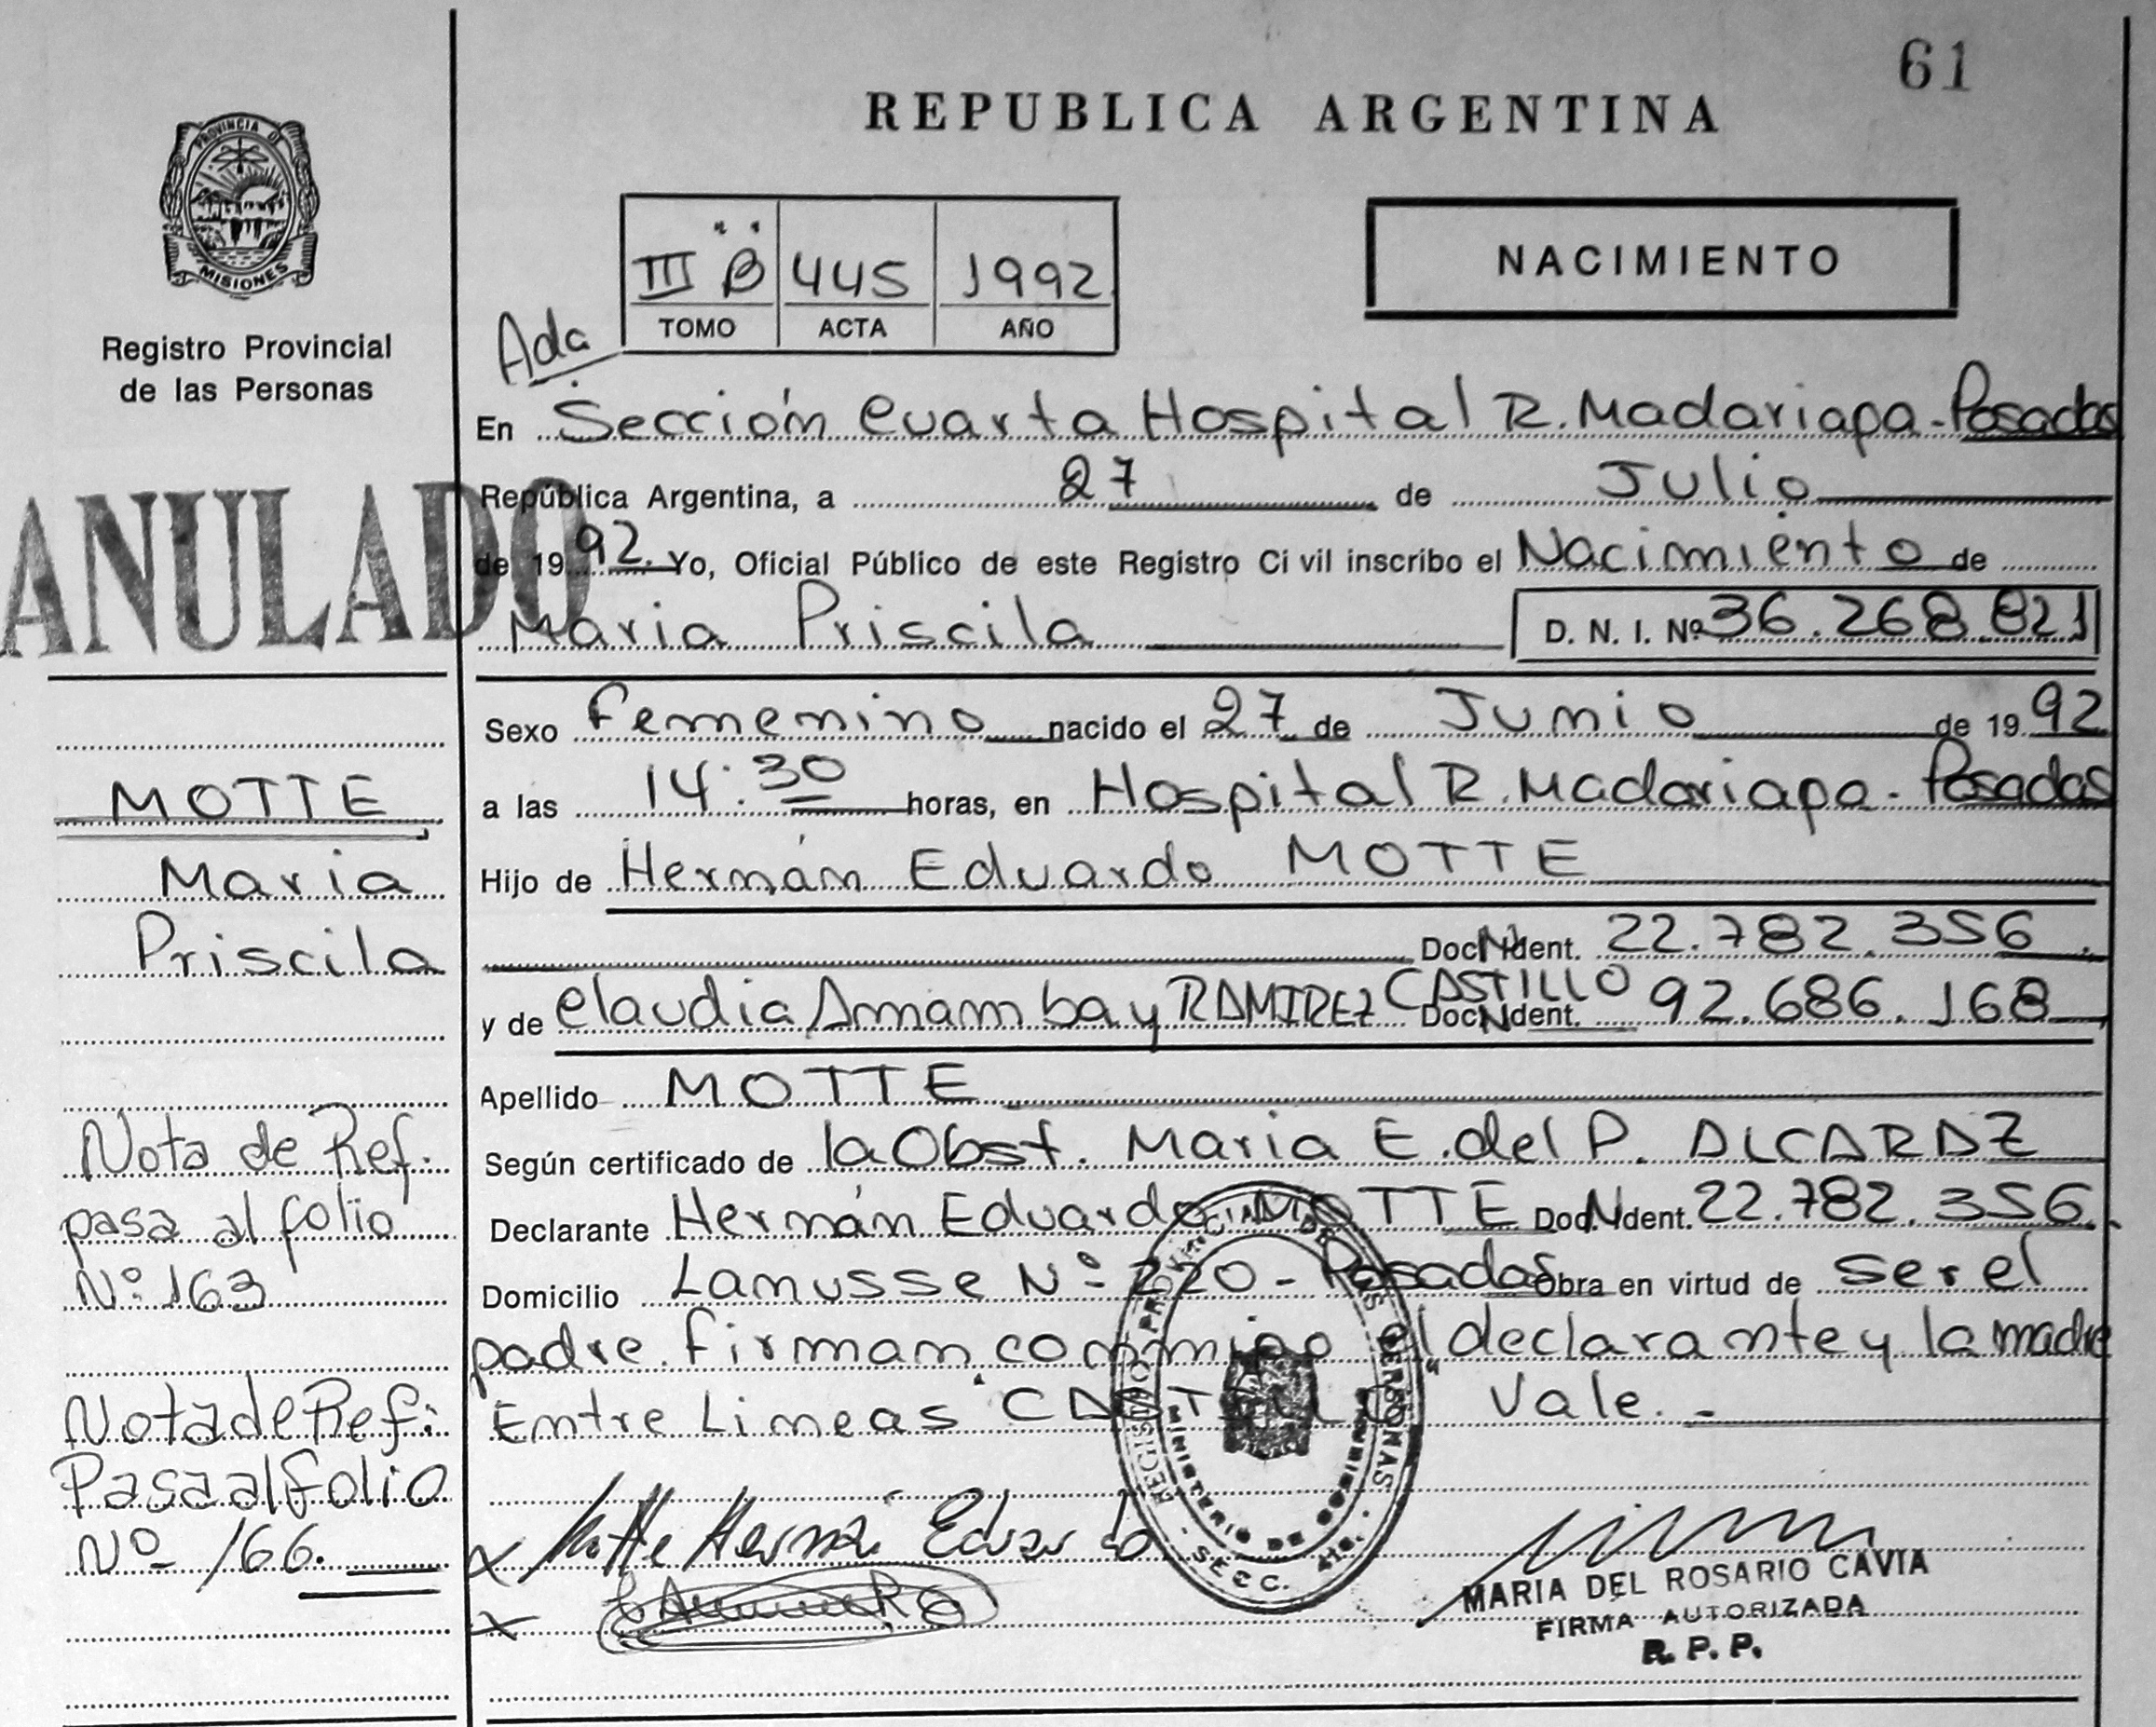 61
REPUBLICA ARGENTINA
PROVINCIA DE
MISIONES
Registro Provincial
de las Personas
III B 445 1992
TOMO ACTA AÑO
NACIMIENTO
Ada
En Sección Cuarta Hospital R. Madariaga - Posadas
República Argentina, a 27 de Julio
ANULADO
de 1992. Yo, Oficial Público de este Registro Civil inscribo el Nacimiento de
Maria Priscila D. N. I. Nº 36.268.821
Sexo Femenino nacido el 27 de Junio de 1992
a las 14:30 horas, en Hospital R. Madariaga - Posadas
Hijo de Hernán Eduardo MOTTE
Doc. N Ident. 22.782.356
y de Claudia Amambay RAMIREZ CASTILLO Doc. N Ident. 92.686.168
Apellido MOTTE
Según certificado de la Obst. Maria E. del P. ALCARAZ
Declarante Hernán Eduardo MOTTE Doc. N Ident. 22.782.356
Domicilio Lanusse Nº 220 - Posadas Obra en virtud de ser el
padre. Firman conmigo el declarante y la madre
Entre Lineas "CASTILLO" Vale. -
MOTTE
Maria
Priscila
Nota de Ref.
pasa al folio
Nº 163
Nota de Ref:
Pasa al folio
Nº 166.
REGISTRO PROVINCIAL DE LAS PERSONAS
MINISTERIO DE GOBIERNO
SECC. 4ta.
x Motte Hernán Eduardo
x
MARIA DEL ROSARIO CAVIA
FIRMA AUTORIZADA
R. P. P.